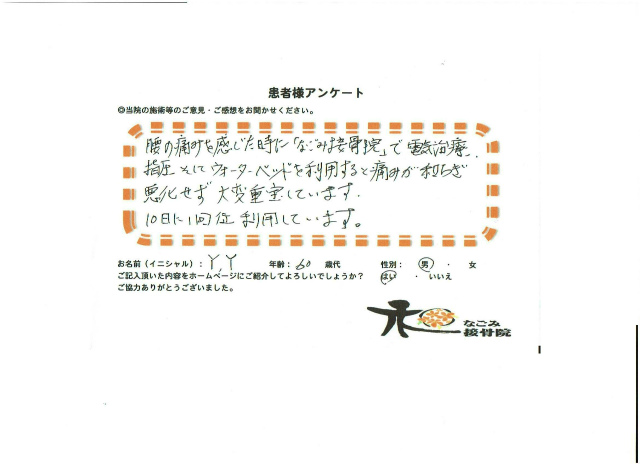 患者様アンケート
◎当院の施術等のご意見・ご感想をお聞かせください。
腰の痛みを感じた時に「なごみ接骨院」で電気治療、
指圧そしてウォーターベッドを利用すると痛みが和らぎ
悪化せず大変重宝しています。
10日に1回位利用しています。
お名前（イニシャル）：Y,Y 年齢：60 歳代 性別：男 ・ 女
ご記入頂いた内容をホームページにご紹介してよろしいでしょうか？ はい ・ いいえ
ご協力ありがとうございました。
なごみ
接骨院